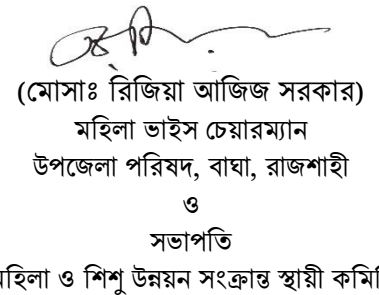 (মোসাঃ রিজিয়া আজিজ সরকার)
মহিলা ভাইস চেয়ারম্যান
উপজেলা পরিষদ, বাঘা, রাজশাহী
ও
সভাপতি
মহিলা ও শিশু উন্নয়ন সংক্রান্ত স্থায়ী কমিটি